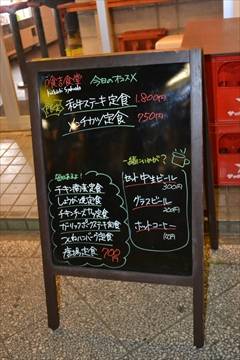 食堂
今日のオススメ
和牛ステーキ定食 1,800円
チカツ定食 750円
チキン南蛮定食
しょうが焼定食
チキンチーズカツ定食
ガーリックポークステーキ定食
つくねハンバーグ定食
唐揚定食 700円
一緒にいかが?
セット中生ビール
300円
グラスビール
200円
ホットコーヒー